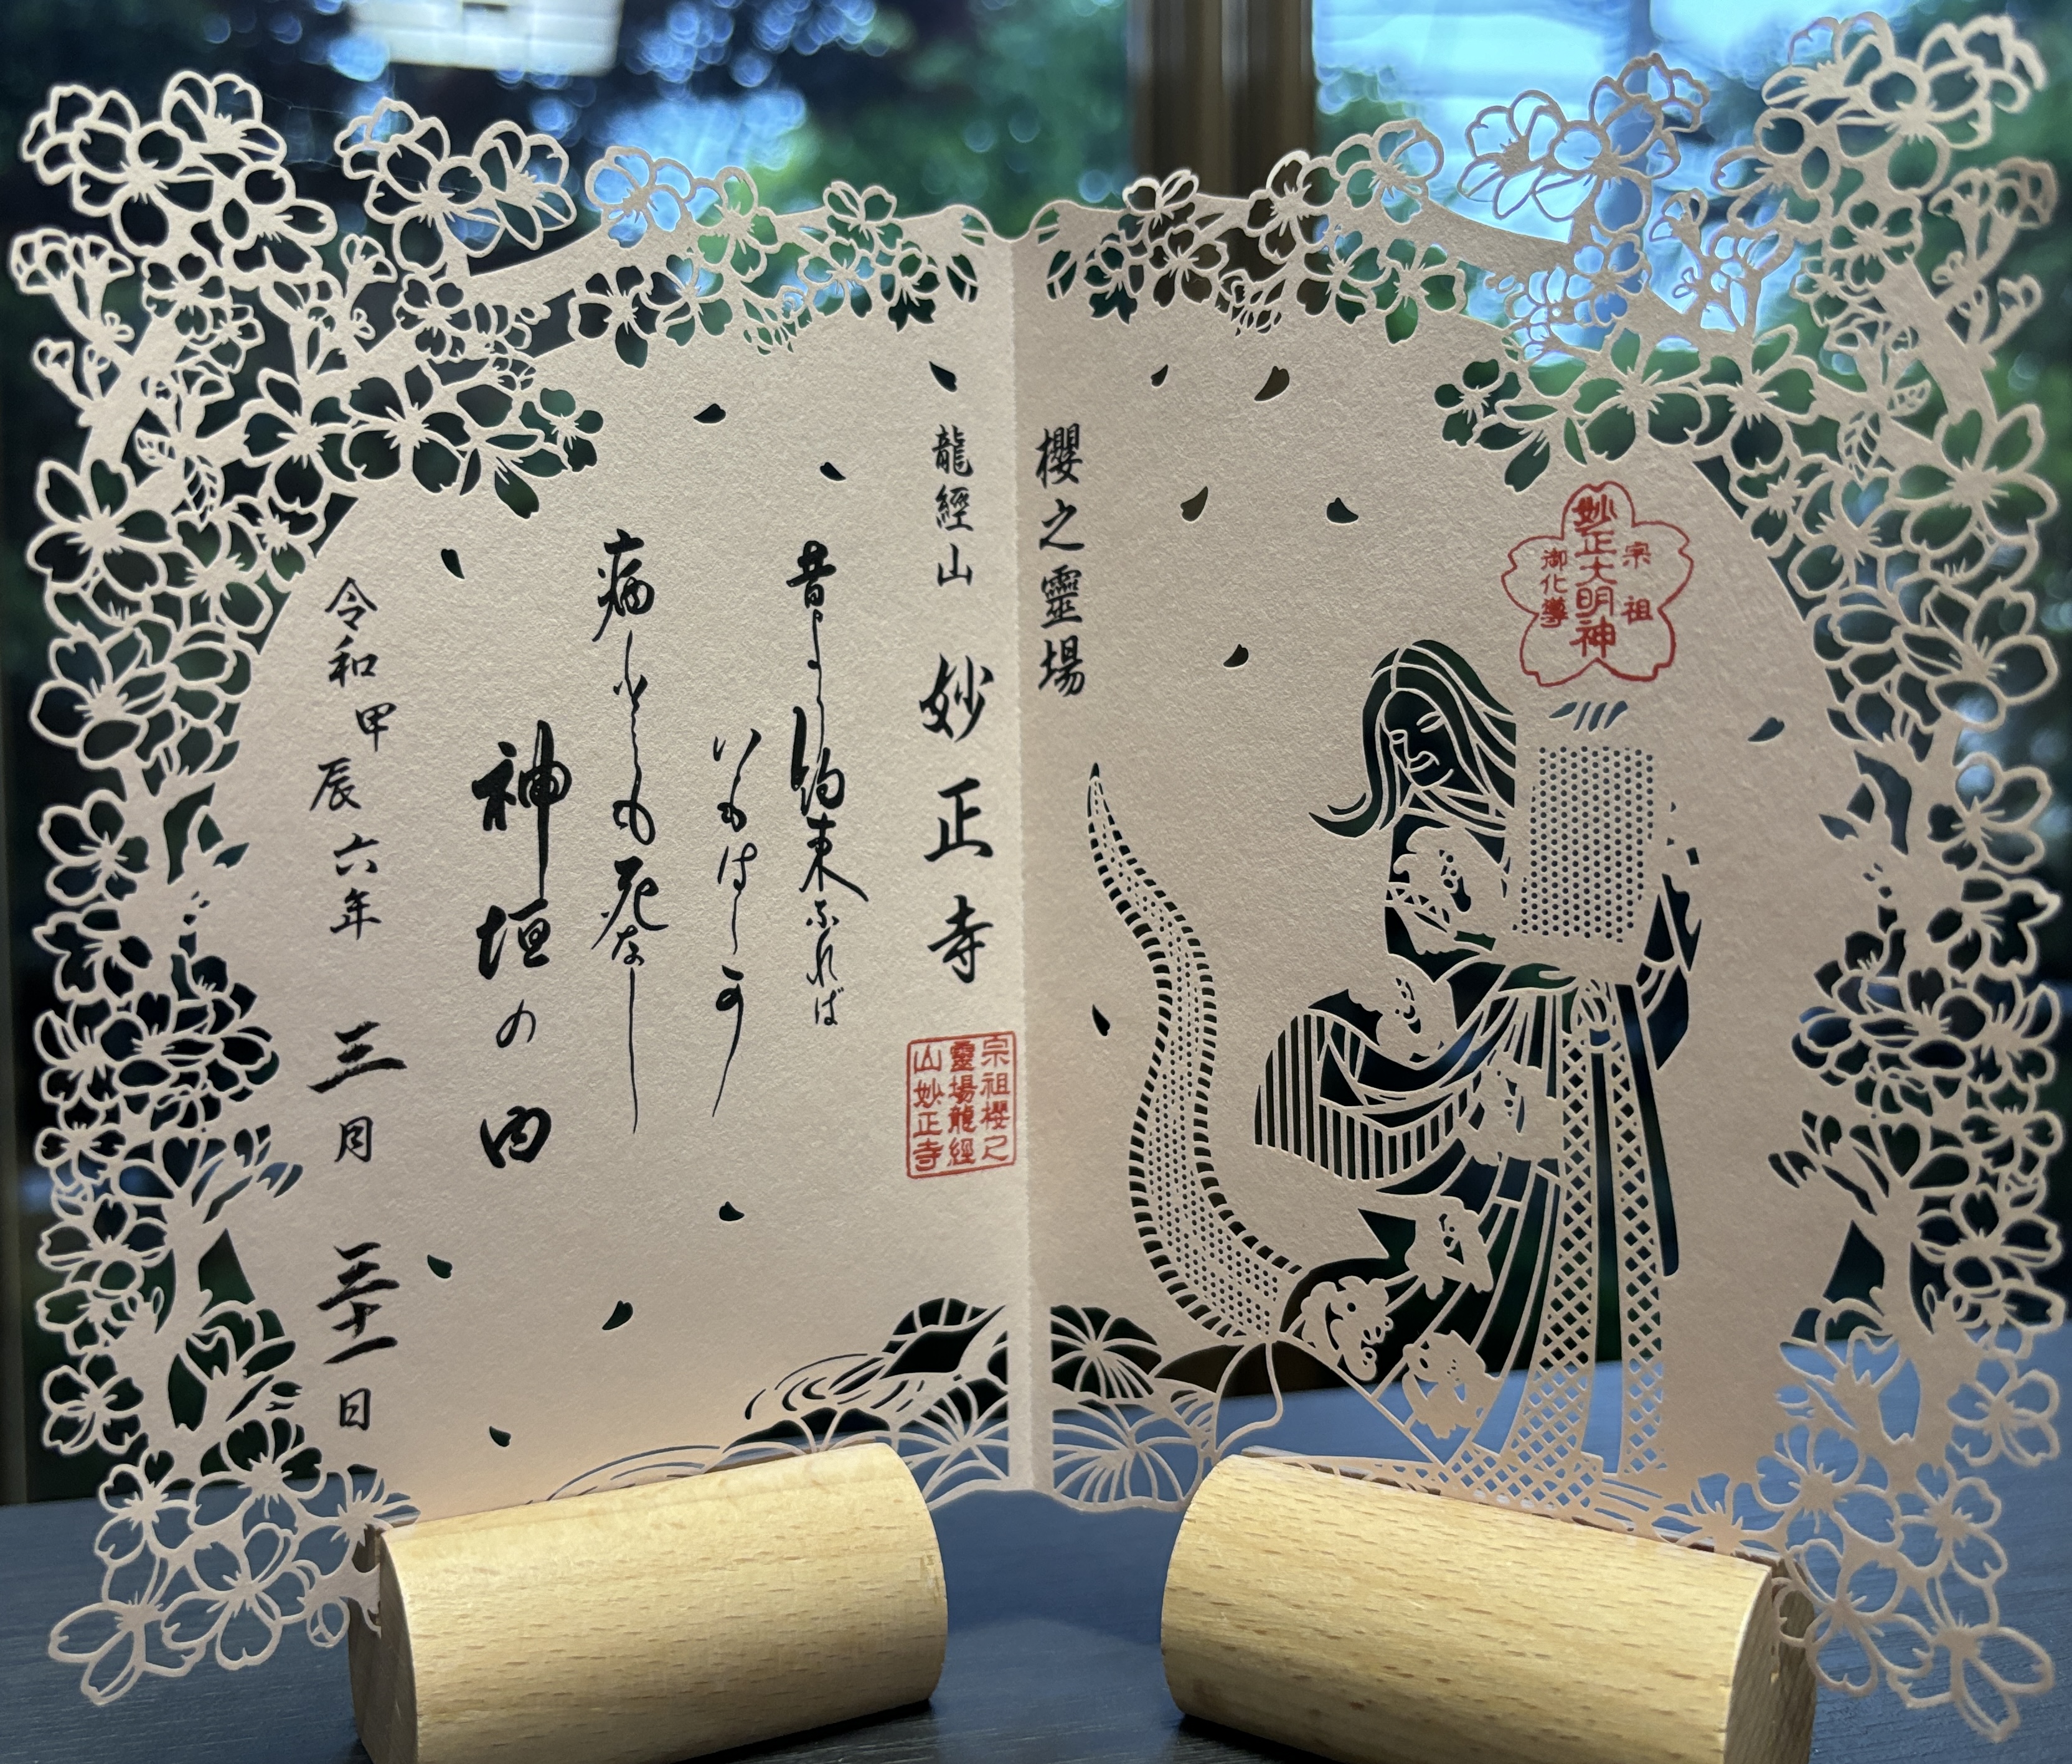 宗祖
妙正大明神
御化導
櫻之靈場
龍經山 妙正寺
宗祖櫻之
靈場龍經
山妙正寺
昔より約束なれば
いもはしか
病むとも死なし
神垣の内
令和甲辰六年 三月 三十一日